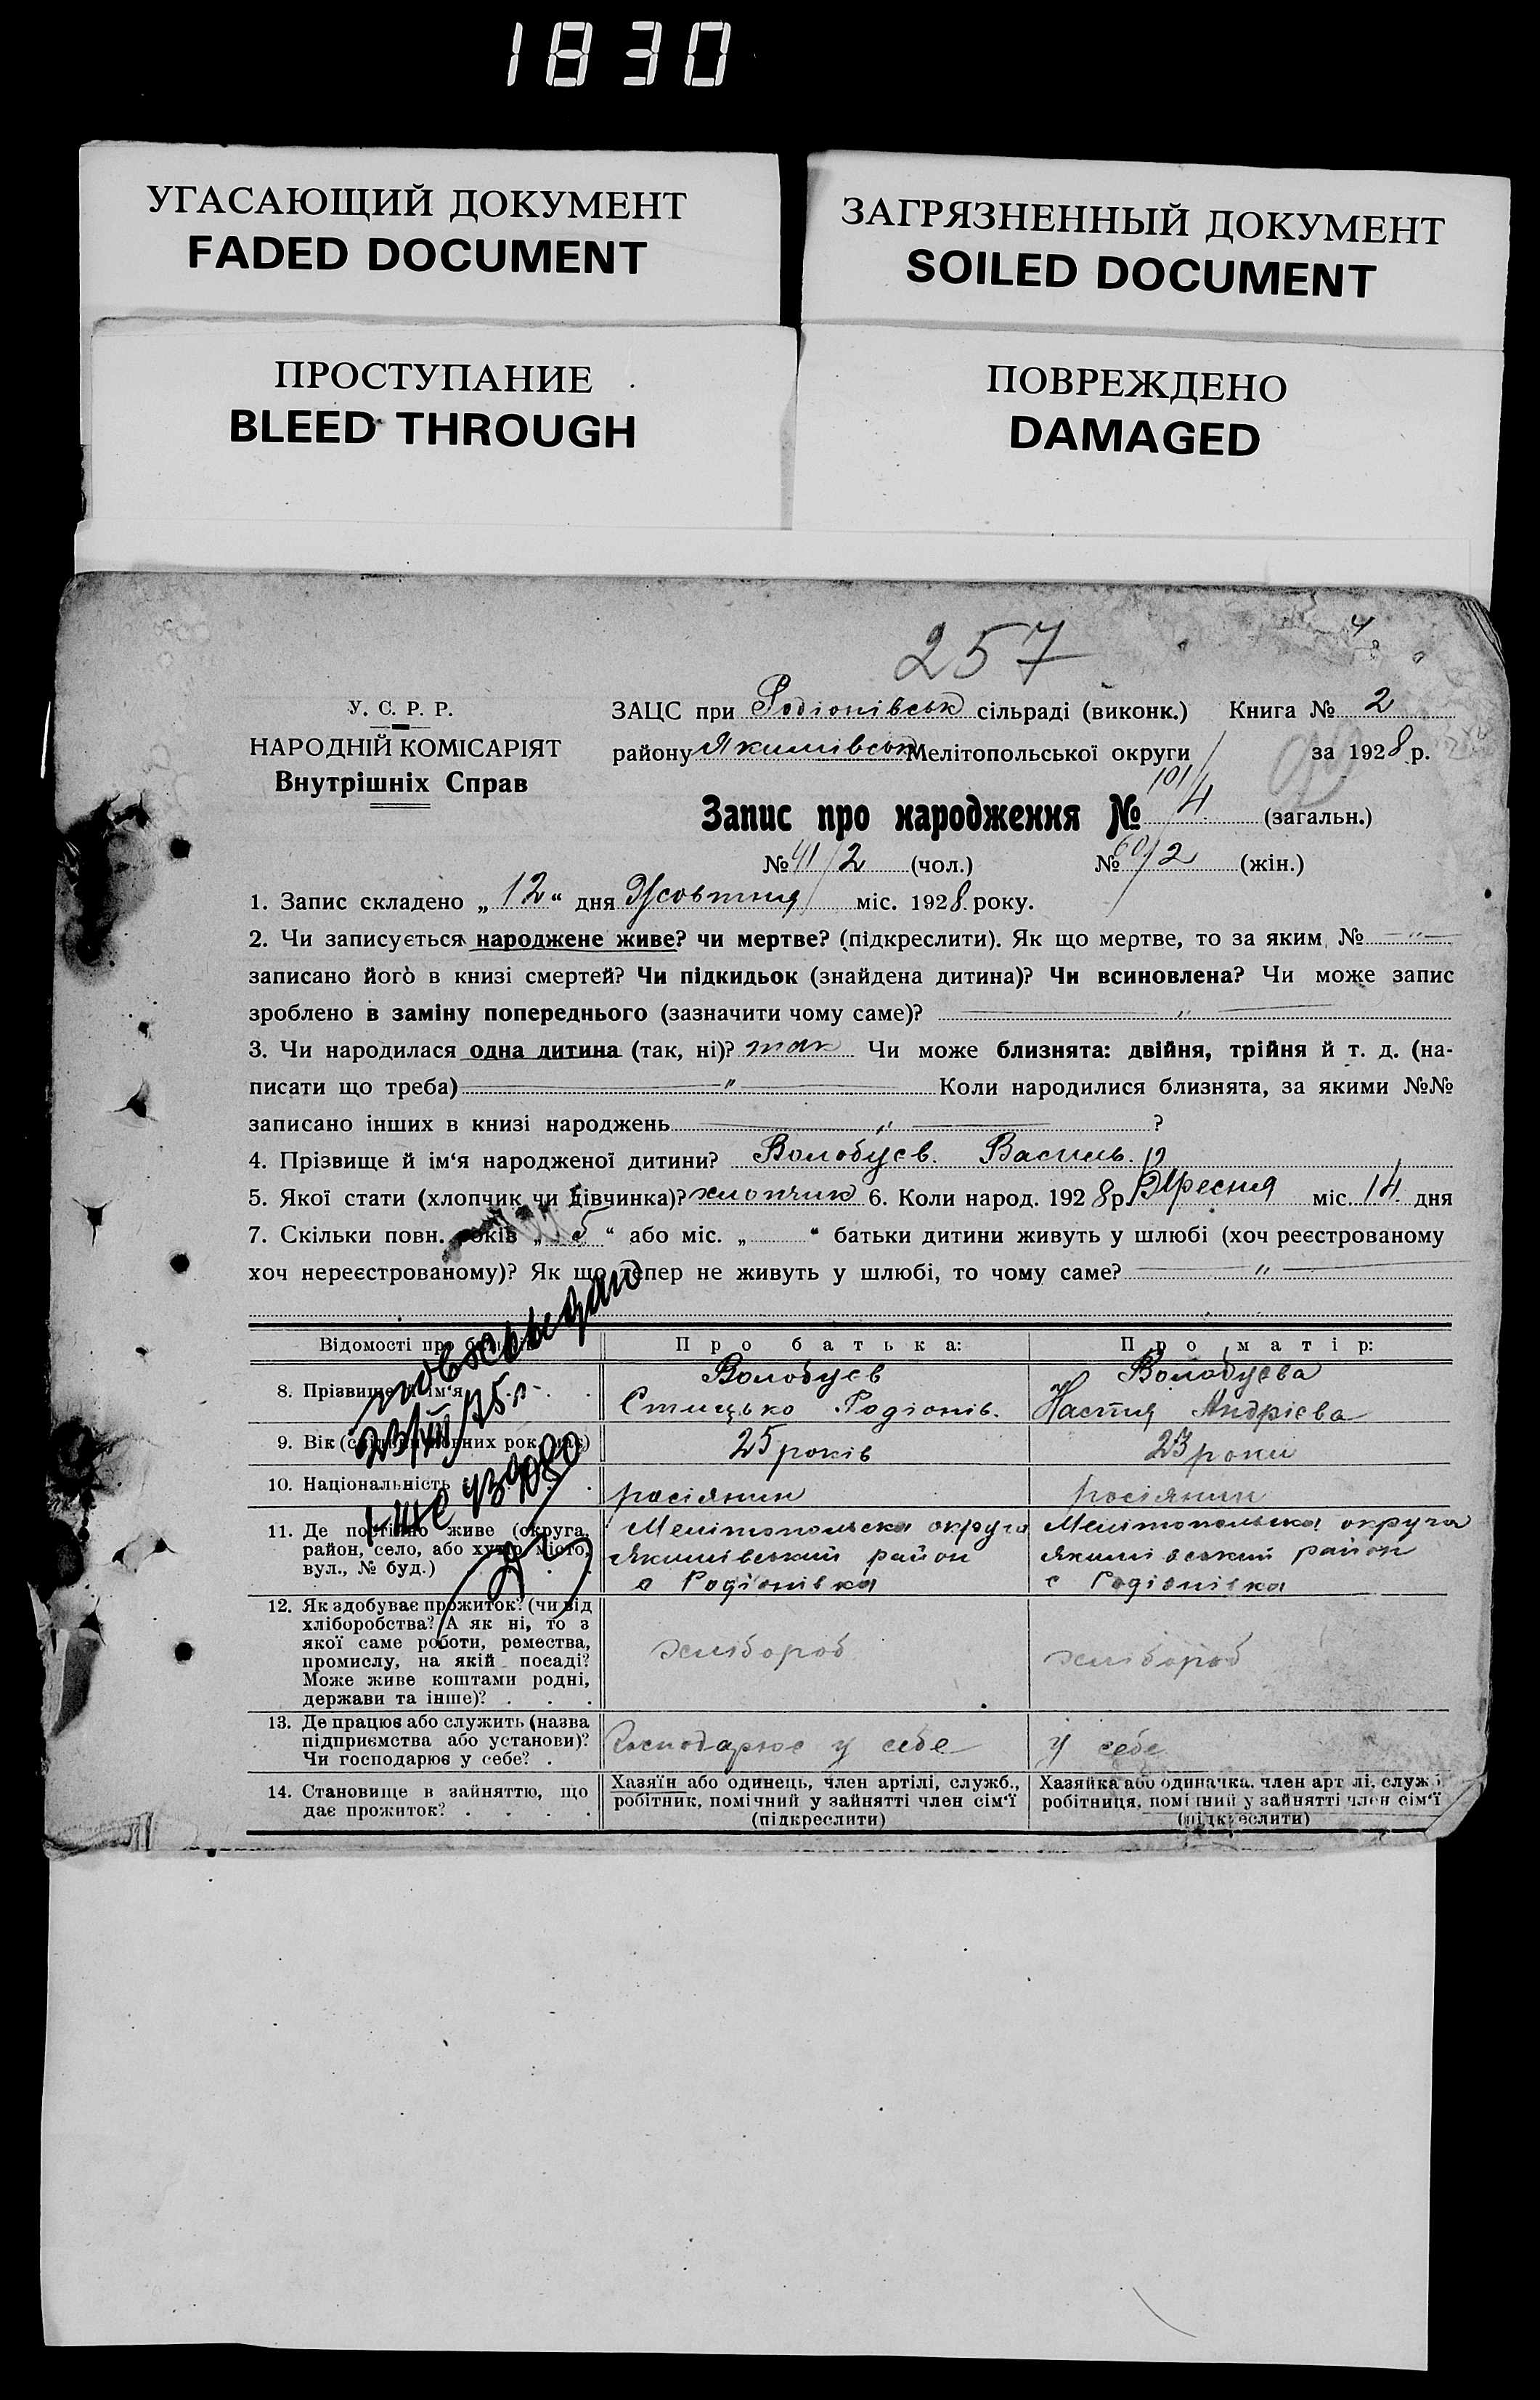 1830
УГАСАЮЩИЙ ДОКУМЕНТ
FADED DOCUMENT
ЗАГРЯЗНЕННЫЙ ДОКУМЕНТ
SOILED DOCUMENT
ПРОСТУПАНИЕ
BLEED THROUGH
ПОВРЕЖДЕНО
DAMAGED
257
У. С. Р. Р.
НАРОДНІЙ КОМІСАРІЯТ
Внутрішніх Справ
ЗАЦС при Родіонівськ сільраді (виконк.) Книга № 2
району Якимівськ Мелітопольської округи за 1928 р.
Запис про народження № 101/4 (загальн.)
№ 41/2 (чол.) № 60/2 (жін.)
1. Запис складено „ 12 “ дня Жовтня міс. 1928 року.
2. Чи записується народжене живе? чи мертве? (підкреслити). Як що мертве, то за яким № — „ —
записано його в книзі смертей? Чи підкидьок (знайдена дитина)? Чи всиновлена? Чи може запис
зроблено в заміну попереднього (зазначити чому саме)? — „ —
3. Чи народилася одна дитина (так, ні)? так Чи може близнята: двійня, трійня й т. д. (на-
писати що треба) — „ — Коли народилися близнята, за якими №№
записано інших в книзі народжень — „ — ?
4. Прізвище й ім‘я народженої дитини? Волобуєв. Василь.
5. Якої статі (хлопчик чи дівчинка)? хлопчик 6. Коли народ. 1928 р. Вресня міс. 14 дня
7. Скільки повн. років „ 5 “ або міс. „ “ батьки дитини живуть у шлюбі (хоч реєстрованому
хоч нереєстрованому)? Як що тепер не живуть у шлюбі, то чому саме? — „ —
Відомості про батьків Про батька: Про матір:
8. Прізвище й ім‘я
Волобуєв
Стицько Родіонів.
Волобуєва
Настя Андрієва
9. Вік (скільки повних рок. має) 25 років 23 роки
10. Національність росіянин росіянин
11. Де постійно живе (округа,
район, село, або хутір, місто,
вул., № буд.)
Мелітопольска округа
Якимівський район
с Родіонівка
Мелітопольска округа
Якимівський район
с Родіонівка
12. Як здобуває прожиток? (чи від
хліборобства? А як ні, то з
якої саме роботи, ремества,
промислу, на якій посаді?
Може живе коштами родні,
держави та інше)?
хлібороб
хлібороб
13. Де працює або служить (назва
підприємства або установи)?
Чи господарює у себе?
Господарює у себе
у себе
14. Становище в зайняттю, що
дає прожиток?
Хазяїн або одинець, член артілі, служб.,
робітник, помічний у зайнятті член сім‘ї
(підкреслити)
Хазяйка або одиначка, член арт лі, служб
робітниця, помічний у зайнятті член сім‘ї
(підкреслити)
23/VII/75 г.